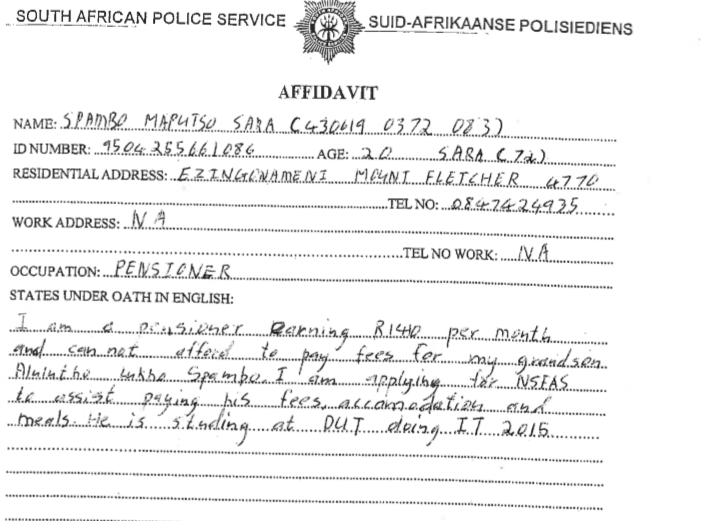 SOUTH AFRICAN POLICE SERVICE SUID-AFRIKAANSE POLISIEDIENS
AFFIDAVIT
NAME: SPAMBO MAPUTSO SARA (430619 0372 083)
ID NUMBER: 9504255661086 AGE: 20 SARA (72)
RESIDENTIAL ADDRESS: EZINGONAMENI MOUNT FLETCHER 4770
TEL NO: 0847424935
WORK ADDRESS: N A
TEL NO WORK: N A
OCCUPATION: PENSIONER
STATES UNDER OATH IN ENGLISH:
I am a pensioner earning R1410 per month
and can not afford to pay fees for my grandson
Spambo. I am applying for NSFAS
to assist paying his fees, accomodation and
meals. He is studing at DUT doing IT 2015